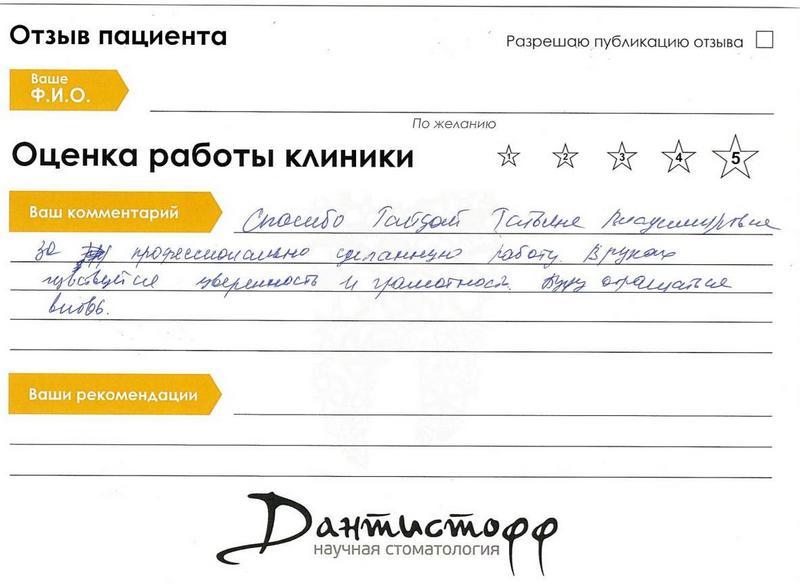 Отзыв пациента
Разрешаю публикацию отзыва
Ваше
Ф.И.О.
По желанию
Оценка работы клиники
1 2 3 4 5
Ваш комментарий
Спасибо Татьяне Владимировне
за профессионально сделанную работу. В руках
чувствуется уверенность и грамотность. Буду обращаться
вновь.
Ваши рекомендации
Дантистофф
научная стоматология